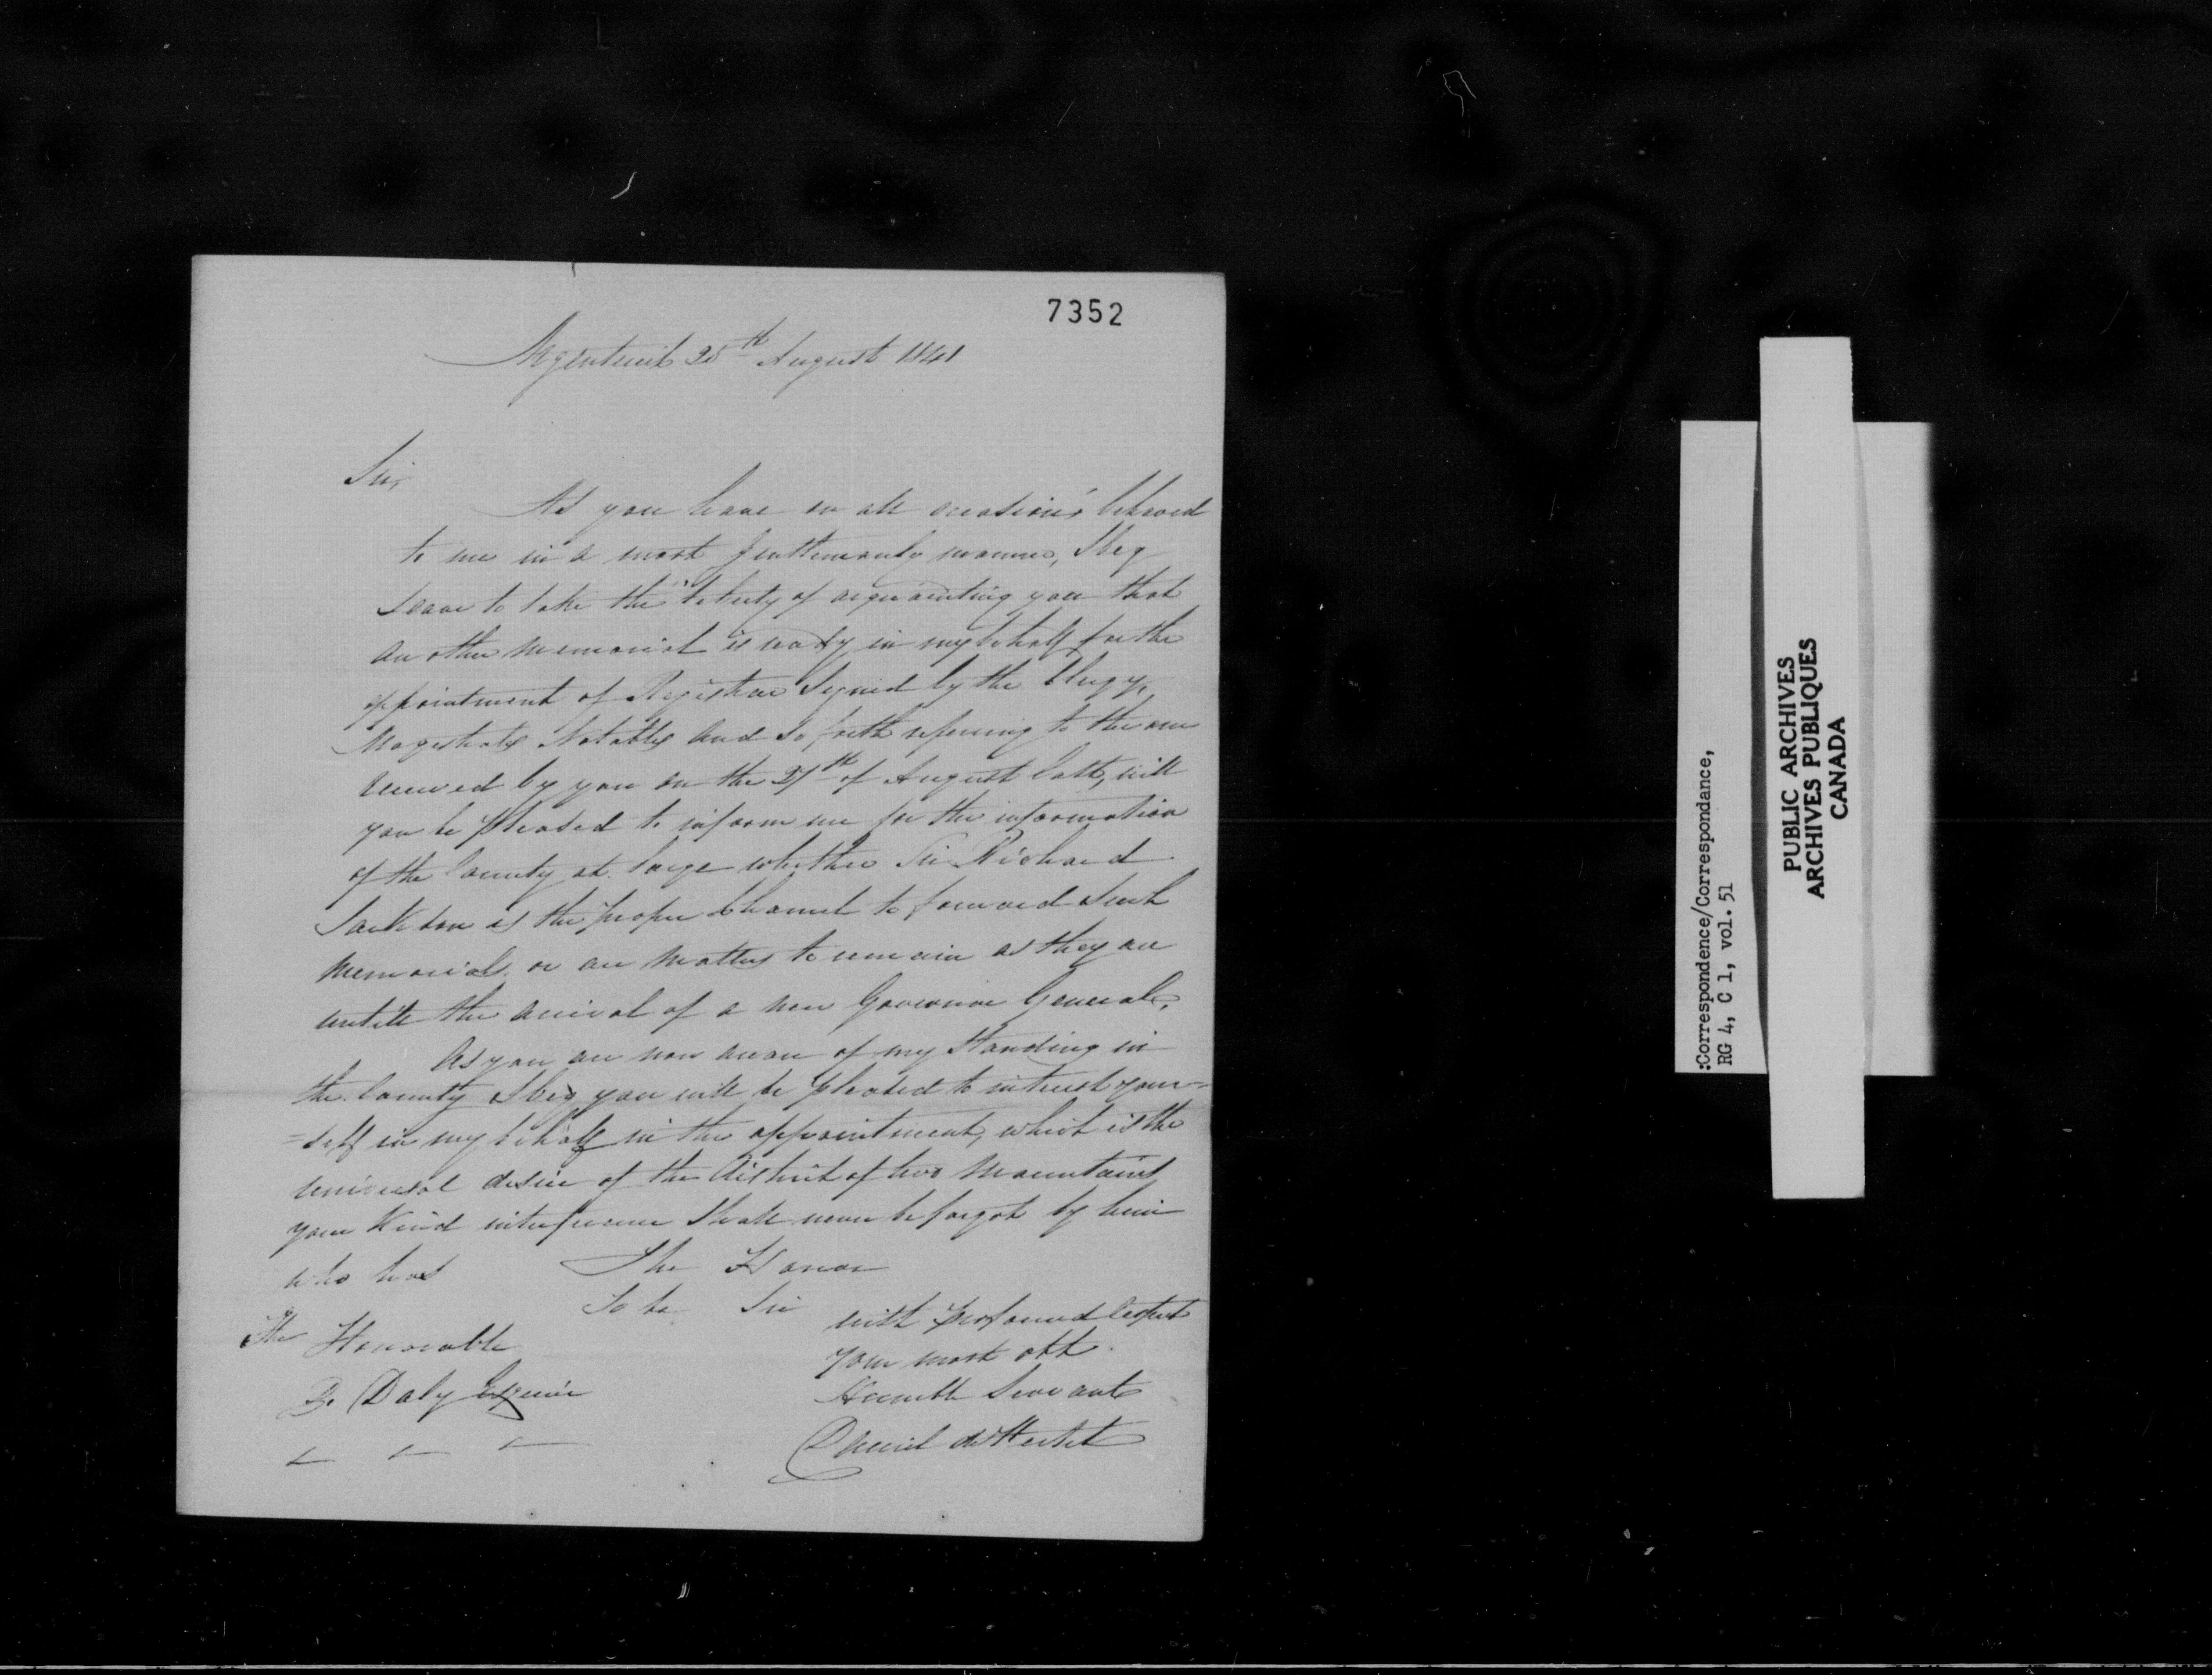 7352
Argenteuil 28th August 1841
Sir,
As you have on all occasions behaved
to me in a most gentlemanly manner, I beg
leave to take the liberty of acquainting you that
an other memorial is ready in my behalf for the
appointment of Registrar Signed by the Clergy,
Magistrates Notables and so forth refering to the one
received by you on the 27th of August last, will
you be pleased to inform me for the information
of the County at large whether Sir Richard
Jackson is the proper Channel to forward such
memorials, or are matters to remain as they are
untill the arrival of a new Governor General,
As you are now aware of my Standing in
the County I beg you will be pleased to interest your=
=self in my behalf in the appointment, which is the
universal desire of the District of two Mountains
your Kind interference Shall never be forgot by him
who has The Honor
To be Sir
with profound respect
your most obt
Humble Servant
de Hertel
The Honorable
D. Daly Esquire
:Correspondence/Correspondance,
RG 4, C 1, vol. 51
PUBLIC ARCHIVES
ARCHIVES PUBLIQUES
CANADA